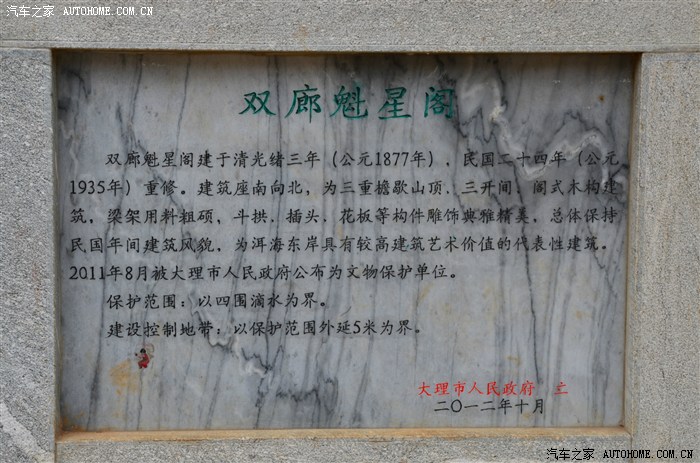 汽车之家 AUTOHOME.COM.CN
双廊魁星阁
双廊魁星阁建于清光绪三年（公元1877年），民国二十四年（公元
1935年）重修。建筑座南向北，为三重檐歇山顶、三开间、阁式木构建
筑，梁架用料粗硕，斗拱、插头、花板等构件雕饰典雅精美，总体保持
民国年间建筑风貌，为洱海东岸具有较高建筑艺术价值的代表性建筑。
2011年8月被大理市人民政府公布为文物保护单位。
保护范围：以四围滴水为界。
建设控制地带：以保护范围外延5米为界。
大理市人民政府 立
二〇一二年十月
汽车之家 AUTOHOME.COM.CN